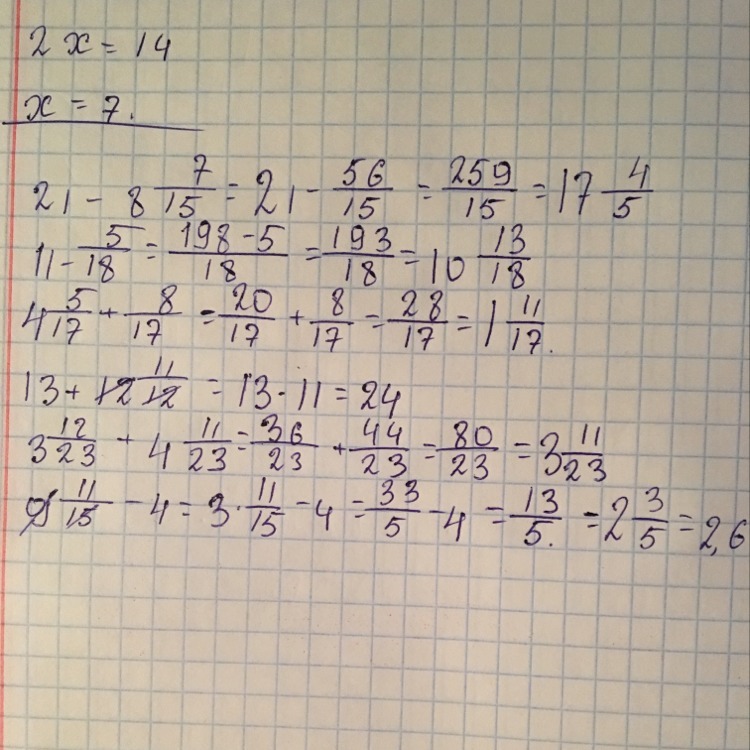 2x = 14
x = 7.
21 - 8 7/15 = 21 - 56/15 = 259/15 = 17 4/5
11 - 5/18 = 198-5/18 = 193/18 = 10 13/18
4 5/17 + 8/17 = 20/17 + 8/17 = 28/17 = 1 11/17.
13 + 12 11/12 = 13 · 11 = 24
3 12/23 + 4 11/23 = 36/23 + 44/23 = 80/23 = 3 11/23
9 11/15 - 4 = 3 · 11/15 - 4 = 33/5 - 4 = 13/5. = 2 3/5 = 2,6